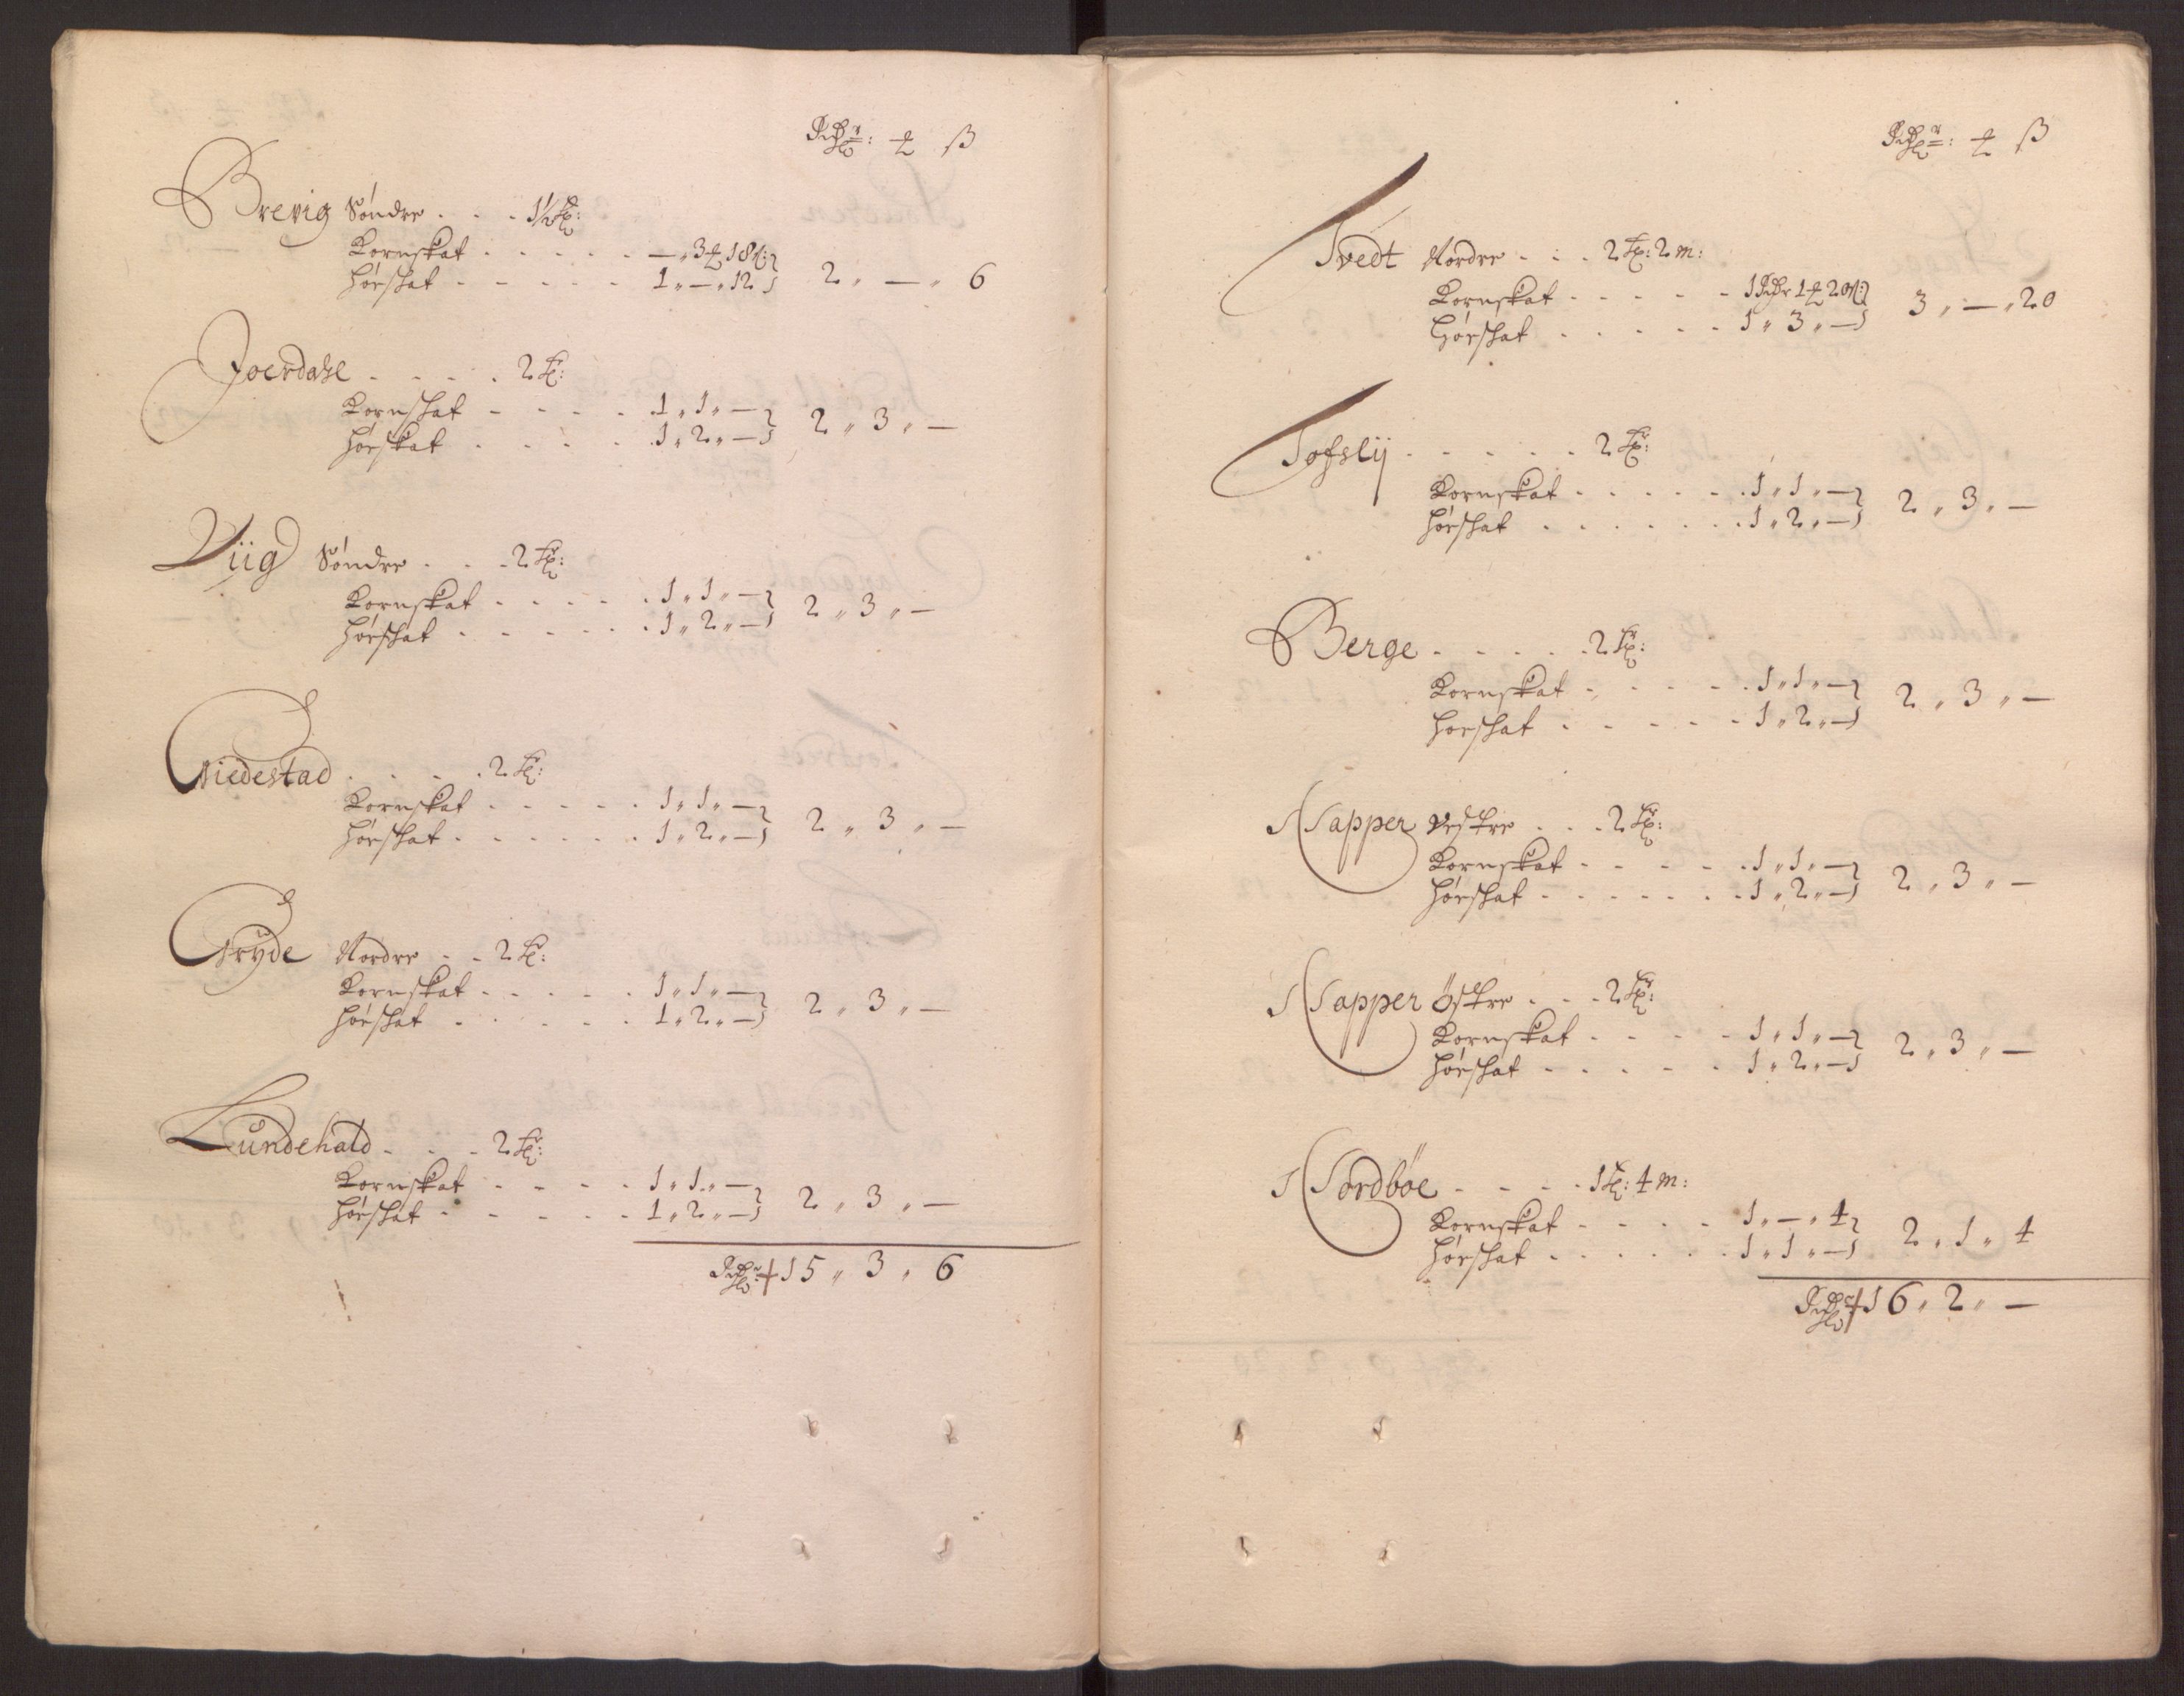 Rdr: ℔ ß
Brevig Søndre . . . 1½ Tr:
Kornskat . . . . . — „ 3 ℔ 18 ß:
Hørskat . . . . . 1 „ — „ 12 } 2 „ — „ 6
Joerdahl . . . . 2 Tr:
Kornskat . . . . 1 „ 1 „ —
Hørskat . . . . 1 „ 2 „ — } 2 „ 3 „ —
Viig Søndre . . . 2 Tr:
Kornskat . . . . . 1 „ 1 „ —
Hørskat . . . . . 1 „ 2 „ — } 2 „ 3 „ —
Giedestad . . . . 2 Tr:
Kornskat . . . . . 1 „ 1 „ —
Hørskat . . . . . . 1 „ 2 „ — } 2 „ 3 „ —
Gryde Nordre . . 2 Tr:
Kornskat . . . . . 1 „ 1 „ —
Hørskat . . . . . 1 „ 2 „ — } 2 „ 3 „ —
Lundehald . . . 2 Tr:
Kornskat . . . . 1 „ 1 „ —
Hørskat . . . . . 1 „ 2 „ — } 2 „ 3 „ —
Rdr 15 „ 3 „ 6
Rdr: ℔ ß
Tvedt Nordre . . . 2 Tr: 2 m:
Kornskat . . . . . 1 Rdr 1 ℔ 20 ß:
Hørskat . . . . . 1 „ 3 „ — } 3 „ — „ 20
Tofslij . . . . . 2 Tr:
Kornskat . . . . . . 1 „ 1 „ —
Hørskat . . . . . . . 1 „ 2 „ — } 2 „ 3 „ —
Berge . . . . . 2 Tr:
Kornskat . . . . . 1 „ 1 „ —
Horskat . . . . . 1 „ 2 „ — } 2 „ 3 „ —
Napper Vestre . . . 2 Tr:
Kornskat . . . . . 1 „ 1 „ —
Hørskat . . . . . . 1 „ 2 „ — } 2 „ 3 „ —
Napper Östre . . . 2 Tr:
Kornskat . . . . 1 „ 1 „ —
Hørskat . . . . . 1 „ 2 „ — } 2 „ 3 „ —
Nordböe . . . . 1 Tr: 4 m:
Kornskat . . . . 1 „ — „ 4
Hørskat . . . . . . 1 „ 1 „ — } 2 „ 1 „ 4
Rdr 16 „ 2 „ —